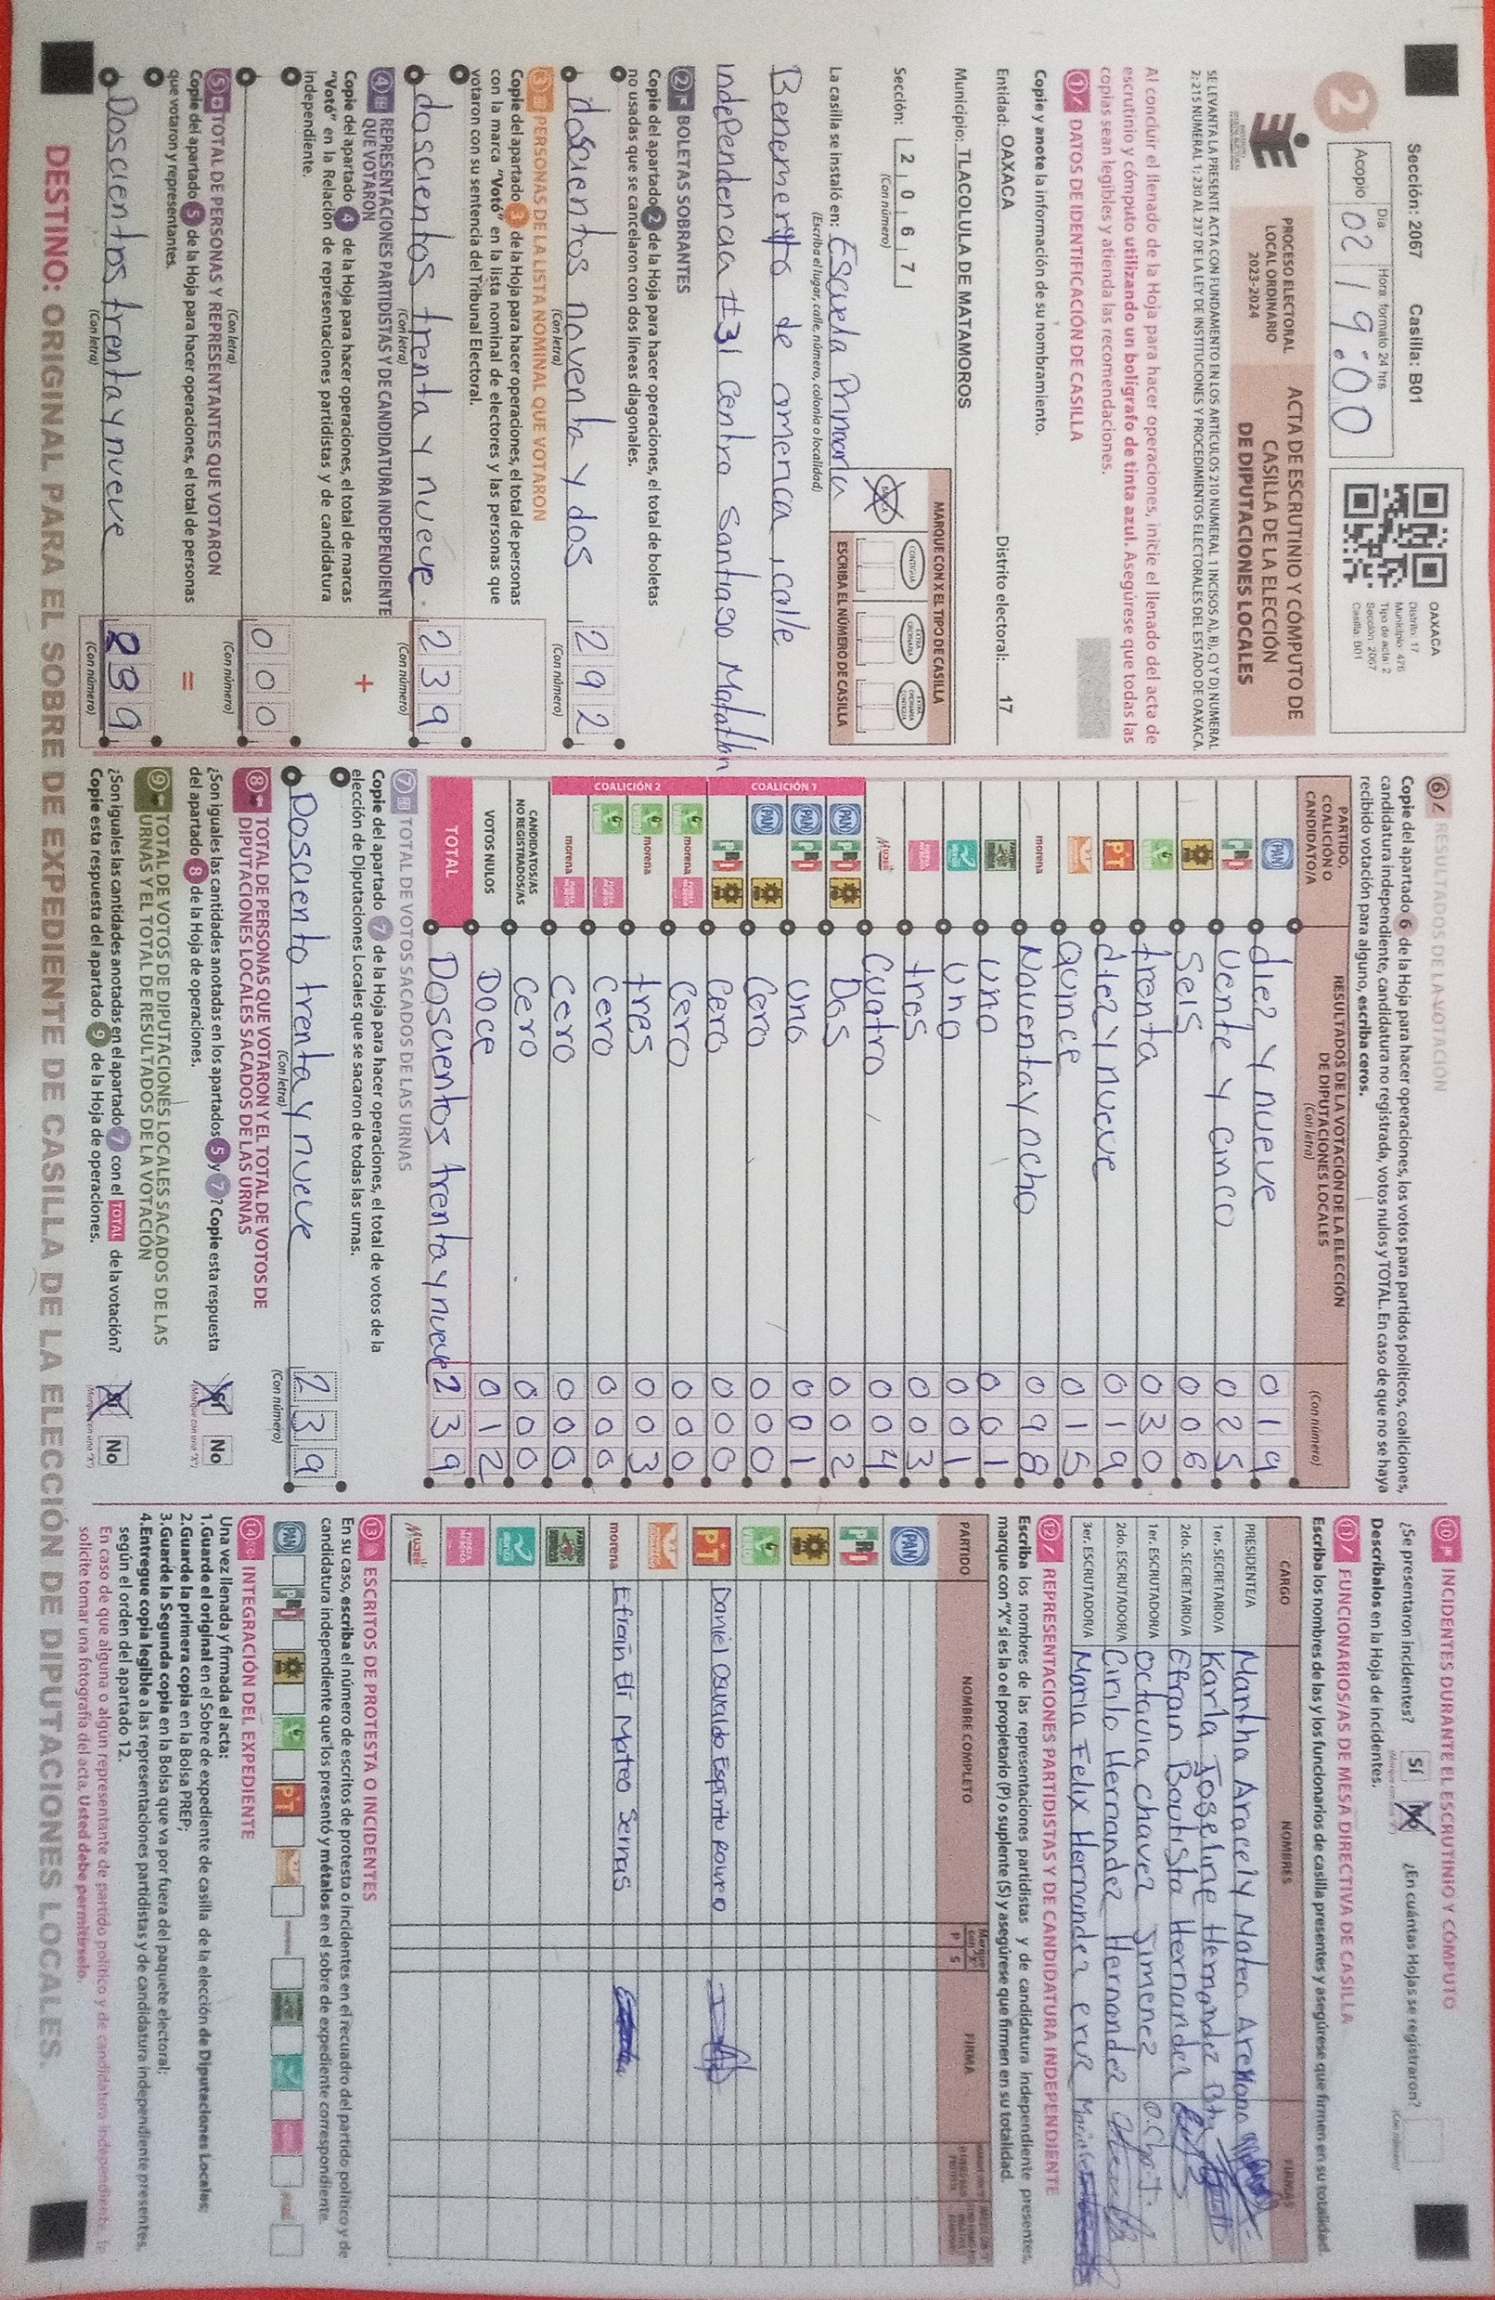 Sección: 2067 Casilla: B01
2
Acopio
Día
Hora: formato 24 hrs
02 19:00
OAXACA
Distrito: 17
Municipio: 476
Tipo de acta: 2
Sección: 2067
Casilla: B01
PROCESO ELECTORAL
LOCAL ORDINARIO
2023-2024
ACTA DE ESCRUTINIO Y CÓMPUTO DE
CASILLA DE LA ELECCIÓN
DE DIPUTACIONES LOCALES
SE LEVANTA LA PRESENTE ACTA CON FUNDAMENTO EN LOS ARTÍCULOS 210 NUMERAL 1 INCISOS A), B), C) Y D) NUMERAL
2; 215 NUMERAL 1; 230 AL 237 DE LA LEY DE INSTITUCIONES Y PROCEDIMIENTOS ELECTORALES DEL ESTADO DE OAXACA.
Al concluir el llenado de la Hoja para hacer operaciones, inicie el llenado del acta de
escrutinio y cómputo utilizando un bolígrafo de tinta azul. Asegúrese que todas las
copias sean legibles y atienda las recomendaciones.
1 DATOS DE IDENTIFICACIÓN DE CASILLA
Copie y anote la información de su nombramiento.
Entidad: OAXACA Distrito electoral: 17
Municipio: TLACOLULA DE MATAMOROS
Sección: 2 0 6 7
(Con número)
MARQUE CON X EL TIPO DE CASILLA
CONTIGUA
EXTRA ORDINARIA
EXTRA ORDINARIA CONTIGUA
ESCRIBA EL NÚMERO DE CASILLA
La casilla se instaló en: Escuela Primaria
(Escriba el lugar, calle, número, colonia o localidad)
Benemerito de america, calle
independencia #31 Centro Santiago Matatlan
2 BOLETAS SOBRANTES
Copie del apartado 2 de la Hoja para hacer operaciones, el total de boletas
no usadas que se cancelaron con dos líneas diagonales.
doscientos noventa y dos 292
(Con letra) (Con número)
3 PERSONAS DE LA LISTA NOMINAL QUE VOTARON
Copie del apartado 3 de la Hoja para hacer operaciones, el total de personas
con la marca "Votó" en la lista nominal de electores y las personas que
votaron con su sentencia del Tribunal Electoral.
doscientos trenta y nueve. 239
(Con letra) (Con número)
4 REPRESENTACIONES PARTIDISTAS Y DE CANDIDATURA INDEPENDIENTE
QUE VOTARON
+
Copie del apartado 4 de la Hoja para hacer operaciones, el total de marcas
"Votó" en la Relación de representaciones partidistas y de candidatura
independiente.
000
(Con letra) (Con número)
5 TOTAL DE PERSONAS Y REPRESENTANTES QUE VOTARON
=
Copie del apartado 5 de la Hoja para hacer operaciones, el total de personas
que votaron y representantes.
Doscientos trenta y nueve 239
(Con letra) (Con número)
6 RESULTADOS DE LA VOTACIÓN
Copie del apartado 6 de la Hoja para hacer operaciones, los votos para partidos políticos, coaliciones,
candidatura independiente, candidatura no registrada, votos nulos y TOTAL. En caso de que no se haya
recibido votación para alguno, escriba ceros.
PARTIDO,
COALICIÓN O
CANDIDATO/A
RESULTADOS DE LA VOTACIÓN DE LA ELECCIÓN
DE DIPUTACIONES LOCALES
(Con letra)
(Con número)
PAN diez y nueve 019
PRI vente y cinco 025
PRD seis 006
VERDE trenta 030
PT diez y nueve 019
quince 015
morena Noventa y ocho 098
una 001
uno 001
tres 003
Mujer cuatro 004
COALICIÓN 1
PAN PRI PRD Dos 002
PAN PRI uno 001
PAN PRD Cero 000
PRI PRD Cero 000
COALICIÓN 2
VERDE morena cero 000
VERDE morena tres 003
VERDE cero 000
morena cero 000
CANDIDATOS/AS
NO REGISTRADOS/AS cero 000
VOTOS NULOS Doce 012
TOTAL Doscientos trenta y nueve 239
7 TOTAL DE VOTOS SACADOS DE LAS URNAS
Copie del apartado 7 de la Hoja para hacer operaciones, el total de votos de la
elección de Diputaciones Locales que se sacaron de todas las urnas.
Dosciento trenta y nueve 239
(Con letra) (Con número)
8 TOTAL DE PERSONAS QUE VOTARON Y EL TOTAL DE VOTOS DE
DIPUTACIONES LOCALES SACADOS DE LAS URNAS
¿Son iguales las cantidades anotadas en los apartados 5 y 7? Copie esta respuesta
del apartado 8 de la Hoja de operaciones.
Sí No
(Marque con una "X")
9 TOTAL DE VOTOS DE DIPUTACIONES LOCALES SACADOS DE LAS
URNAS Y EL TOTAL DE RESULTADOS DE LA VOTACIÓN
¿Son iguales las cantidades anotadas en el apartado 7 con el TOTAL de la votación?
Copie esta respuesta del apartado 9 de la Hoja de operaciones.
Sí No
(Marque con una "X")
10 INCIDENTES DURANTE EL ESCRUTINIO Y CÓMPUTO
¿Se presentaron incidentes? Sí No ¿En cuántas Hojas se registraron?
(Marque con una "X") (Con número)
Descríbalos en la Hoja de incidentes.
11 FUNCIONARIOS/AS DE MESA DIRECTIVA DE CASILLA
Escriba los nombres de las y los funcionarios de casilla presentes y asegúrese que firmen en su totalidad.
CARGO NOMBRES FIRMAS
PRESIDENTE/A Martha Aracely Mateo Arellano
1er. SECRETARIO/A Karla Joseline Hernandez Bta
2do. SECRETARIO/A Efrain Bautista Hernandez
1er. ESCRUTADOR/A octavia chavez Jimenez O. Chp. J.
2do. ESCRUTADOR/A Cirilo Hernandez Hernandez
3er. ESCRUTADOR/A Maria Felix Hernandez cruz
12 REPRESENTACIONES PARTIDISTAS Y DE CANDIDATURA INDEPENDIENTE
Escriba los nombres de las representaciones partidistas y de candidatura independiente presentes,
marque con "X" si es la o el propietario (P) o suplente (S) y asegúrese que firmen en su totalidad.
PARTIDO NOMBRE COMPLETO Marque con "X" P S FIRMA
PAN
PRI
PRD
VERDE
PT Daniel Osvaldo Espiritu
morena Efraín Elí Mateo Sernas
Mujer
13 ESCRITOS DE PROTESTA O INCIDENTES
En su caso, escriba el número de escritos de protesta o incidentes en el recuadro del partido político y de
candidatura independiente que los presentó y métalos en el sobre de expediente correspondiente.
PAN PRI PRD VERDE PT morena
14 INTEGRACIÓN DEL EXPEDIENTE
Una vez llenada y firmada el acta:
1.Guarde el original en el Sobre de expediente de casilla de la elección de Diputaciones Locales;
2.Guarde la primera copia en la Bolsa PREP;
3.Guarde la Segunda copia en la Bolsa que va por fuera del paquete electoral;
4.Entregue copia legible a las representaciones partidistas y de candidatura independiente presentes,
según el orden del apartado 12.
En caso de que alguna o algún representante de partido político y de candidatura independiente te
solicite tomar una fotografía del acta, Usted debe permitírselo.
DESTINO: ORIGINAL PARA EL SOBRE DE EXPEDIENTE DE CASILLA DE LA ELECCIÓN DE DIPUTACIONES LOCALES.